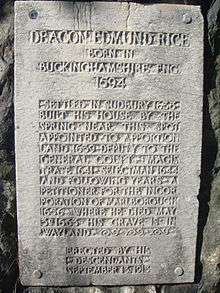 DEACON EDMUND RICE
BORN IN
BUCKINGHAMSHIRE ENG
1594
SETTLED IN SUDBURY
BUILT HIS HOUSE BY THE
SPRING NEAR THIS SPOT
APPOINTED TO APPORTION
LAND 1639 DEPUTY TO THE
GENERAL COURT & MAGIS
TRATE 1641 SELECTMAN 1644
AND FOLLOWING YEARS A
PETITIONER FOR THE INCOR
PORATION OF MARLBOROUGH
1656 WHERE HE DIED MAY
HIS GRAVE IS IN
WAYLAND
ERECTED BY HIS
DESCENDANTS
SEPTEMBER